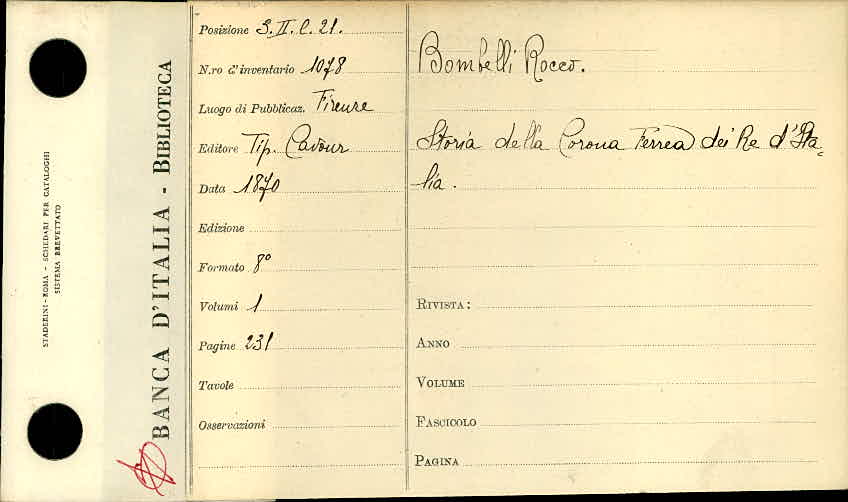 STADERINI - ROMA - SCHEDARI PER CATALOGHI
SISTEMA BREVETTATO
BANCA D'ITALIA - BIBLIOTECA
Posizione S. II. C. 21.
N.ro d'inventario 1078
Luogo di Pubblicaz. Firenze
Editore Tip. Cavour
Data 1870
Edizione
Formato 8º
Volumi 1
Pagine 231
Tavole
Osservazioni
Bombelli Rocco.
Storia della Corona Ferrea dei Re d'Ita-
lia.
RIVISTA:
ANNO
VOLUME
FASCICOLO
PAGINA